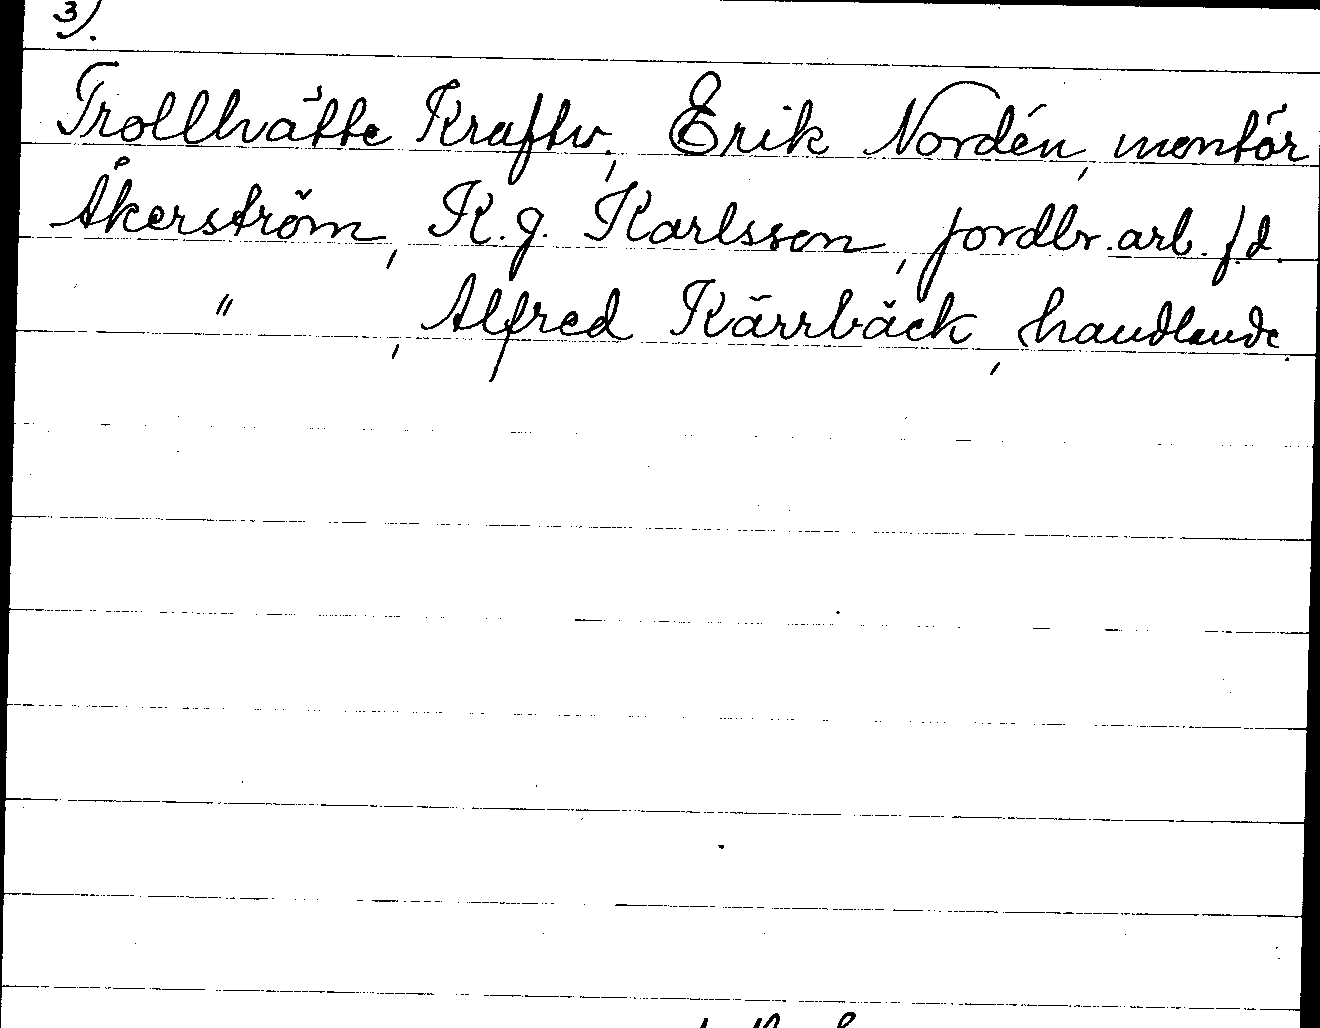 3).
Trollhätte Kraftv., Erik Nordén, montör
Åkerström, K.g. Karlsson, jordbr.arb. f.d.
" , Alfred Kärrbäck, handlande.